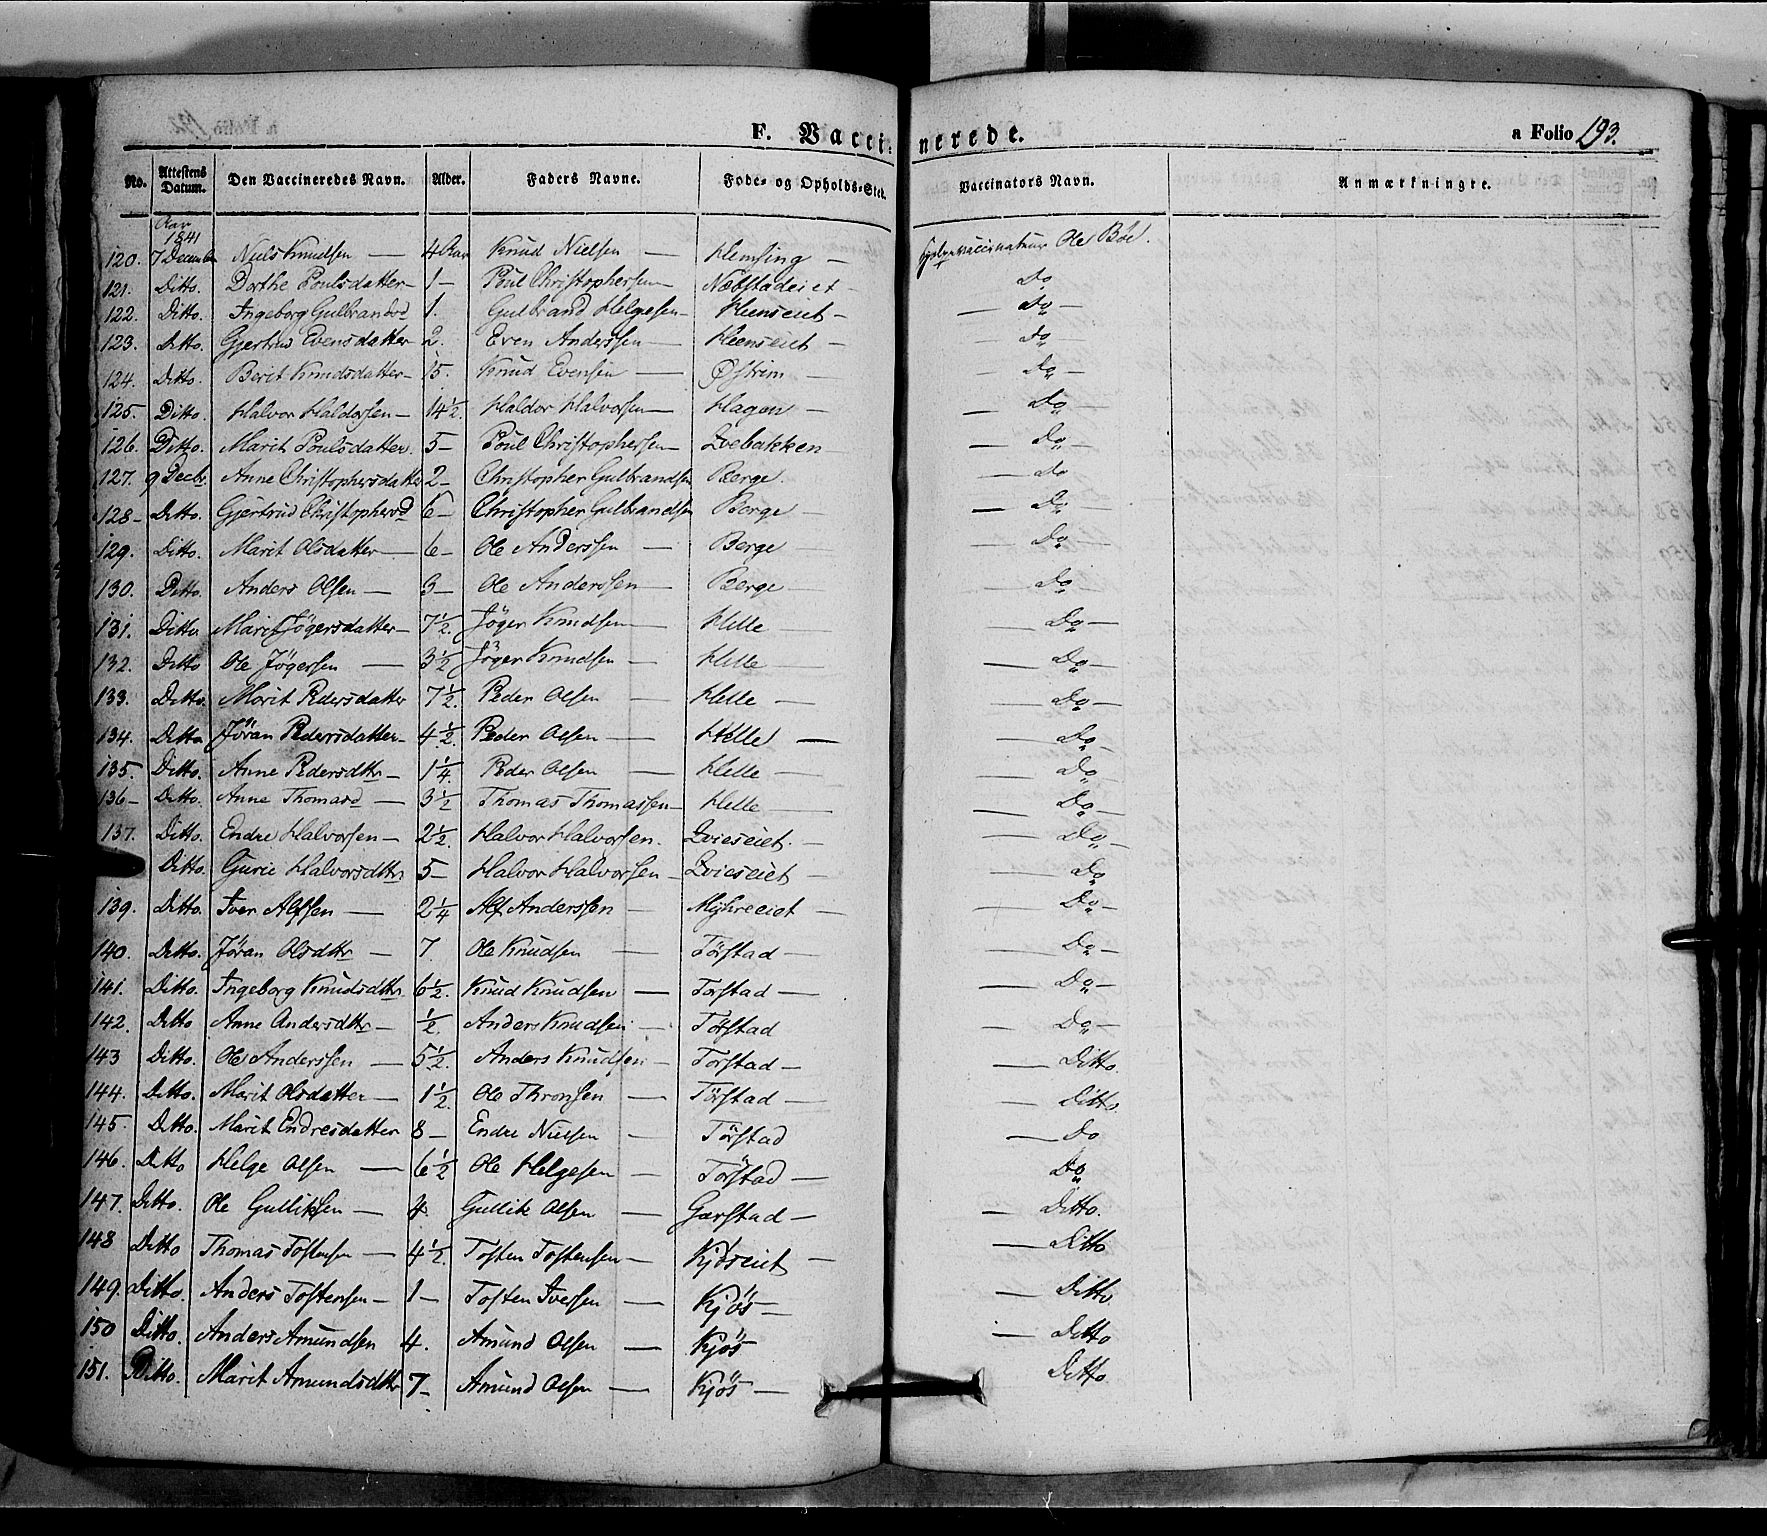 F. Vaccinerede. a Folio 193.
No. Attestens Datum. Den Vaccineredes Navn. Alder. Faders Navne. Føde- og Opholds-Sted. Vaccinators Navn. Anmærkninger.
Aar 1841
120. 7 December Niels Knudsen — 4 Aar Knud Nielsen — Hemsing — Hjelpevaccinateur Ole Bøe.
121. Ditto. Dorthe Poulsdatter — 1 — Poul Christophersen — Nøbstadeiet — Do
122. Ditto. Ingeborg Gulbrandsd 1. Gulbrand Helgesen — Heenseiet — — Do —
123. Ditto. Gjertrud Evensdatter 2. Even Anderssen — Heenseiet — — Do —
124. Ditto. Berit Knudsdatter — 15. Knud Evensen — Østrem — — Do —
125. Ditto. Halvor Haldorsen — 14½. Haldor Halvorsen — Hagen — — Do —
126. Ditto. Marit Poulsdatter. 5 — Poul Christophersen — Qvebakken — — Do —
127. 9 Decbr. Anne Christophersdatter 2 — Christopher Gulbrandsen Berge. — Do
128 — Ditto. Gjertrud Christophersd 6 — Christopher Gulbrandsen Berge — — Do —
129. Ditto. Marit Olsdatter — 6 — Ole Anderssen — Berge — Do —
130. Ditto. Anders Olsen — 3 — Ole Anderssen — Berge — — Do —
131. Ditto Marit Jögersdatter — 7½. Jöger Knudsen — Helle — — Do —
132. Ditto Ole Jögersen — 3½ Jöger Knudsen — Helle — — Do —
133. Ditto. Marit Pedersdatter 7½. Peder Olsen — Helle — — Do —
134. Ditto Jöran Pedersdatter — 4½. Peder Olsen — Helle — — Do —
135. Ditto. Anne Pedersdtr — 1¼. Peder Olsen — Helle — — Do —
136 — Ditto. Anne Thomasd — 3½ Thomas Thomassen — Helle — — Do —
137. Ditto. Endre Halvorsen — 2½. Halvor Halvorsen. Qvieseiet. — — Do —
Ditto. Gurie Halvorsdttr 5 — Halvor Halvorsen — Qvieseiet — — Do
139. Ditto. Iver Alfsen — 2¼ Alf Anderssen — Myhreeiet — — Do —
140. Ditto. Jöran Olsdttr — 7 Ole Knudsen — Törstad — — Do —
141. Ditto. Ingeborg Knudsdttr 6½. Knud Knudsen — Torstad — — Do —
142. Ditto Anne Andersdttr — ½. Anders Knudsen — Törstad — Do —
143 Ditto. Ole Anderssen — 5½. Anders Knudsen — Torstad — — Ditto.
144. Ditto. Marit Olsdatter — 1½. Ole Thronsen — Törstad — — Ditto.
145. Ditto. Marit Endresdatter 8 — Endre Nielsen — Törstad — Do
146. Ditto Helge Olsen — 6½ Ole Helgesen — Törstad — Do
147. Ditto. Ole Gulliksen — 4. Gullik Olsen — Garstad — — Ditto.
148 Ditto Thomas Tostensen — 4½. Tosten Tostensen — Kjöseiet — — Ditto
149. Ditto. Anders Tostensen — 1 — Tosten Iversen — Kjös — — Ditto.
150 Ditto. Anders Amundsen 4. Amund Olsen — Kjös — Ditto
151. Ditto. Marit Amundsdttr 7 — Amund Olsen — Kjös — Ditto.